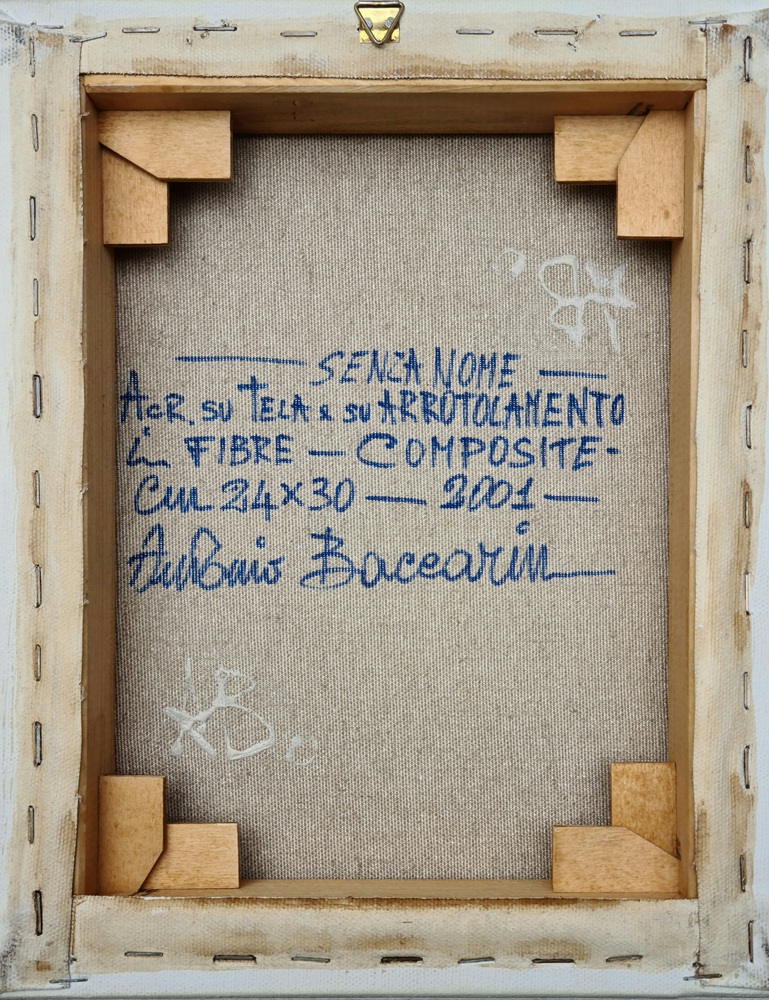 — SENZA NOME —
ACR. SU TELA & SU ARROTOLAMENTO
in FIBRE — COMPOSITE-
Cm 24x30 — 2001 —
Antonio Baccarin